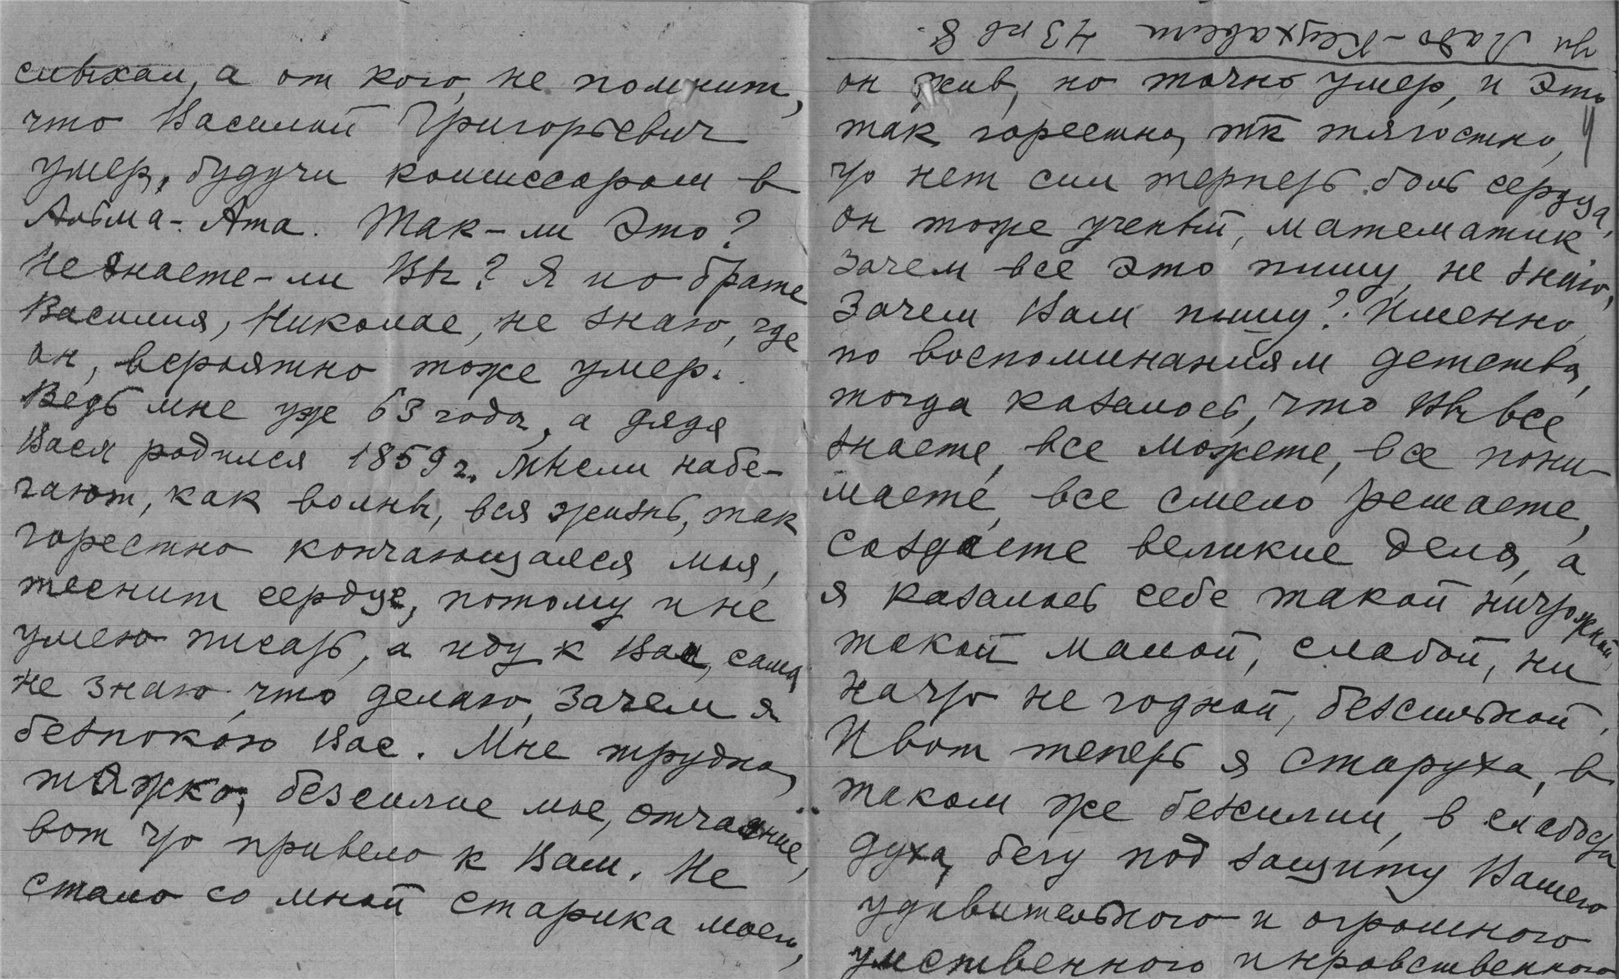 слыхал, а от кого, не помнит,
что Василий Григорьевич
умер, будучи комиссаром в
Альма-Ата. Так-ли это?
Не знаете-ли Вы? Я и о брате
Василия, Николае, не знаю, где
он, вероятно тоже умер.
Ведь мне уж 63 года, а дядя
Вася родился 1859 г. Мысли набе-
гают, как волны, вся жизнь, так
горестно кончающаяся моя,
теснит сердце, потому и не
умею писать, а иду к Вам, сама
не знаю что делаю, зачем я
безпокою Вас. Мне трудно,
тяжко, безсилие мое, отчаяние,
вот что привело к Вам. Не
стало со мной старика моего,
ул Ладо-Кецховели 43 кв 8.
он жив, но точно умер, и это
так горестно, тк тягостно,
что нет сил терпеть боль сердца,
он тоже ученый, математик
Зачем все это пишу, не знаю,
Зачем Вам пишу? Именно
по воспоминаниям детства,
тогда казалось, что Вы все
знаете, все можете, все пони-
маете, все смело решаете,
создаете великие дела, а
я казалась себе такой ничтожной,
такой малой, слабой, ни
на что не годной, безсильной.
И вот теперь я старуха, в
таком же безсилии, в слабости
духа, бегу под защиту Вашего
удивительного и огромного
умственного и нравственного